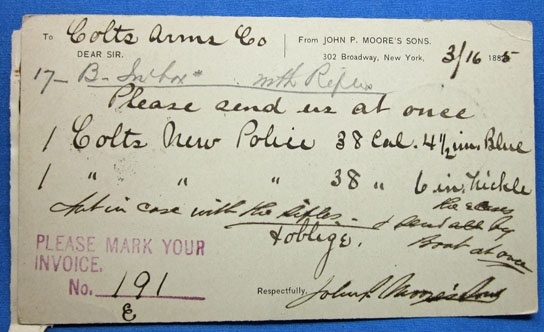 To Colts Arms Co From JOHN P. MOORE'S SONS.
DEAR SIR. 302 Broadway, New York, 3/16 1885
17- B- In box with Rifles
Please send us at once
1 Colts New Police 38 Cal. 4 1/2 in. Blue
1 " " " 38 " 6 in. Nickle
Put in case with the Rifles - & send all by
Boat at once
& oblige.
PLEASE MARK YOUR
INVOICE.
No. 191
Respectfully, John P. Moore's Sons